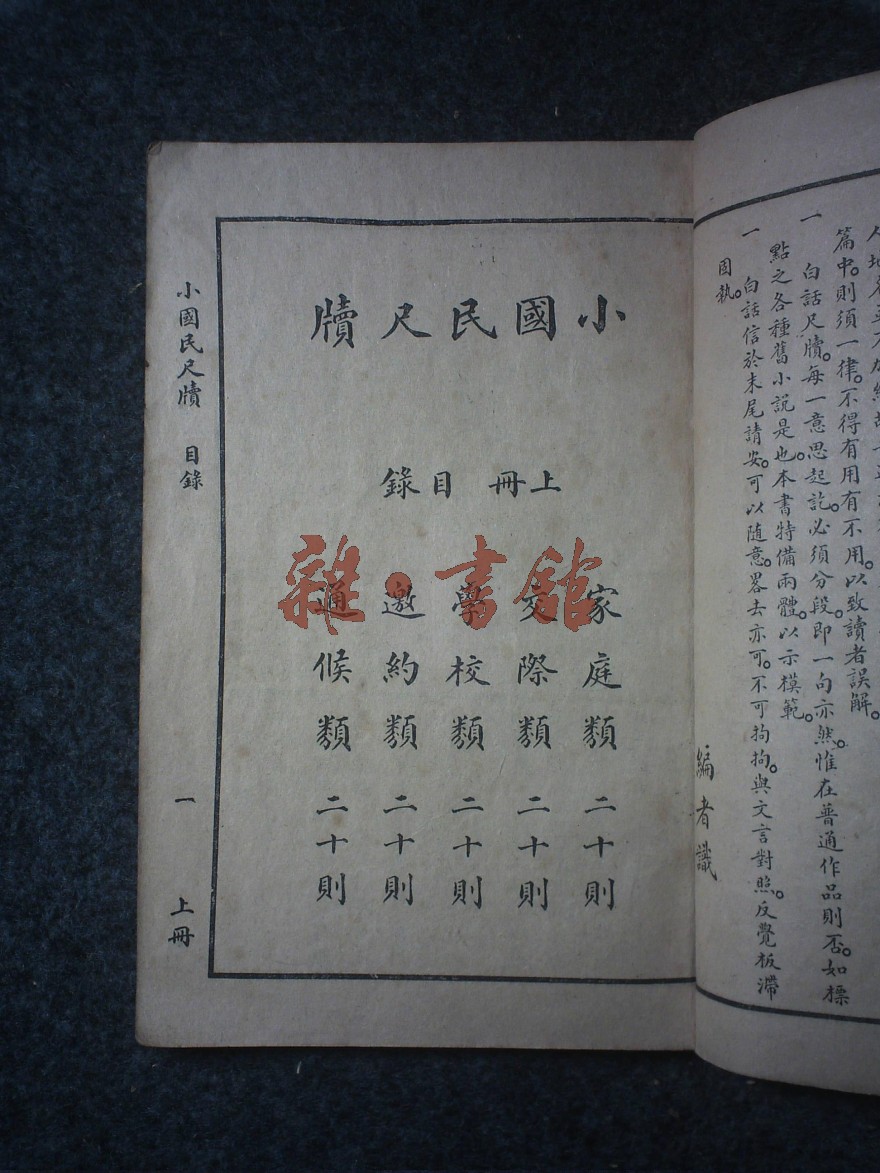 篇中。則須一律。不得有用有不用。以致讀者誤解。
一 白話尺牘。每一意思起訖。必須分段。即一句亦然。惟在普通作品則否。如標
點之各種舊小說是也。本書特備兩體。以示模範。
一 白話信於末尾請安。可以隨意。畧去亦可。不可拘拘。與文言對照。反覺板滯
固執。
編者識
小國民尺牘
上冊 目錄
家庭類 二十則
交際類 二十則
學校類 二十則
邀約類 二十則
通候類 二十則
小國民尺牘 目錄 一 上冊
雜·書館